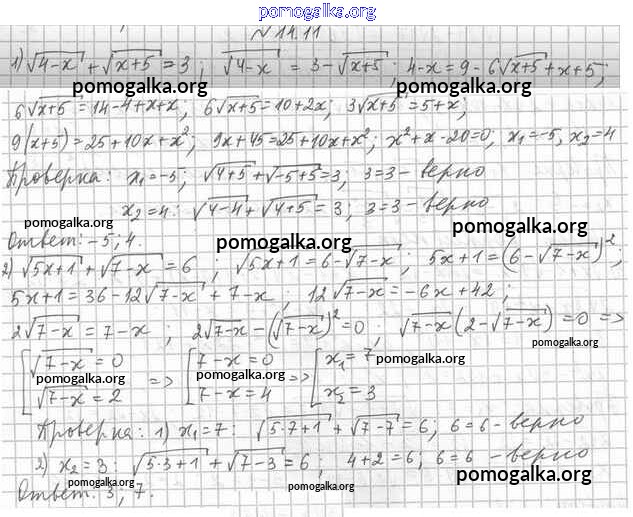 pomogalka.org
№14.11
1) √(4-x) + √(x+5) = 3; √(4-x) = 3 - √(x+5); 4-x = 9 - 6√(x+5) + x+5;
pomogalka.org pomogalka.org
6√(x+5) = 14-4+x+x; 6√(x+5) = 10+2x; 3√(x+5) = 5+x;
9(x+5) = 25+10x+x²; 9x+45 = 25+10x+x²; x²+x-20=0; x₁=-5, x₂=4
Проверка: x₁=-5; √(4+5) + √(-5+5) = 3; 3=3 - верно
x₂=4: √(4-4) + √(4+5) = 3; 3=3 - верно
pomogalka.org pomogalka.org pomogalka.org
Ответ: -5; 4.
2) √(5x+1) + √(7-x) = 6; √(5x+1) = 6-√(7-x); 5x+1 = (6-√(7-x))²;
5x+1 = 36-12√(7-x) + 7-x; 12√(7-x) = -6x+42;
2√(7-x) = 7-x; 2√(7-x) - (√(7-x))² = 0; √(7-x)(2-√(7-x)) = 0 =>
pomogalka.org
[√(7-x) = 0 => [7-x = 0 => [x₁ = 7
pomogalka.org pomogalka.org pomogalka.org
√(7-x) = 2 7-x = 4 x₂ = 3
Проверка: 1) x₁=7: √(5·7+1) + √(7-7) = 6; 6=6 - верно
2) x₂=3: √(5·3+1) + √(7-3) = 6; 4+2=6; 6=6 - верно
Ответ: 3; 7.
pomogalka.org pomogalka.org pomogalka.org